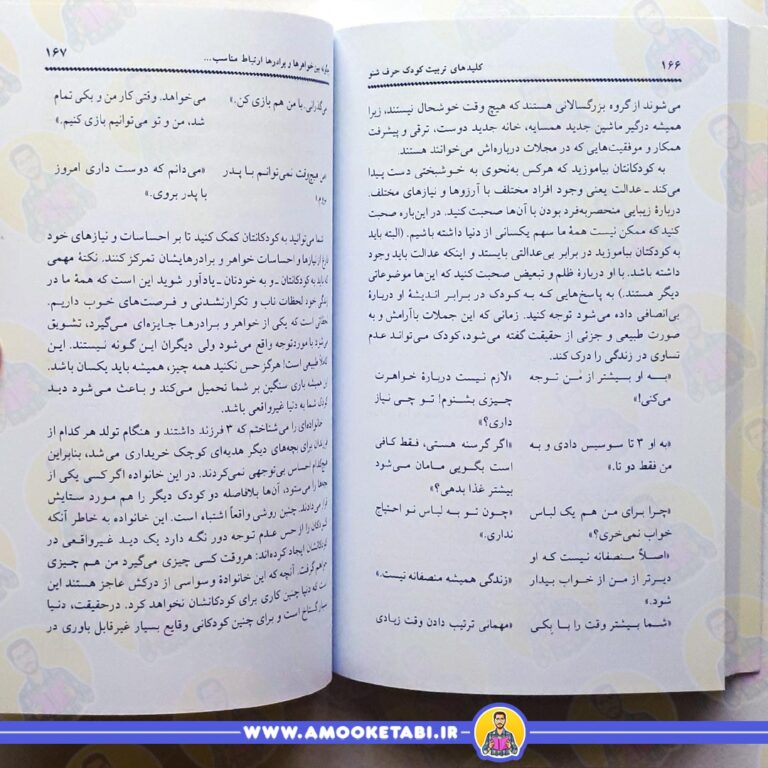 ۱۶۶
کلیدهای تربیت کودک حرف شنو
می‌شوند از گروه بزرگسالانی هستند که هیچ وقت خوشحال نیستند، زیرا
همیشه درگیر ماشین جدید همسایه، خانه جدید دوست، ترقی و پیشرفت
همکار و موفقیت‌هایی که در مجلات درباره‌اش می‌خوانند هستند.
به کودکانتان بیاموزید که هرکس به‌نحوی به خوشبختی دست پیدا
می‌کند ـ عدالت یعنی وجود افراد مختلف با آرزوها و نیازهای مختلف.
دربارهٔ زیبایی منحصربه‌فرد بودن با آن‌ها صحبت کنید. در این‌باره صحبت
کنید که ممکن نیست همهٔ ما سهم یکسانی از دنیا داشته باشیم. (البته باید
به کودکتان بیاموزید در برابر بی‌عدالتی بایستد و اینکه عدالت باید وجود
داشته باشد. با او دربارهٔ ظلم و تبعیض صحبت کنید که این‌ها موضوعاتی
دیگر هستند.) به پاسخ‌هایی که به کودک در برابر اندیشهٔ او دربارهٔ
بی‌انصافی داده می‌شود توجه کنید. زمانی که این جملات باآرامش و به
صورت طبیعی و جزئی از حقیقت گفته می‌شود، کودک می‌تواند عدم
تساوی در زندگی را درک کند.
«به او بیشتر از من توجه «لازم نیست دربارهٔ خواهرت
می‌کنی!» چیزی بشنوم! تو چی نیاز
داری؟»
«به او ۳ تا سوسیس دادی و به «اگر گرسنه هستی، فقط کافی
من فقط دو تا.» است بگویی مامان می‌شود
بیشتر غذا بدهی؟»
«چرا برای من هم یک لباس «چون تو به لباس نو احتیاج
خواب نمی‌خری؟» نداری.»
«اصلاً منصفانه نیست که او
دیرتر از من از خواب بیدار «زندگی همیشه منصفانه نیست.»
شود.»
«شما بیشتر وقت را با بکی «مهمانی ترتیب دادن وقت زیادی
بین خواهرها و برادرها ارتباط مناسب...
۱۶۷
می‌گذرانی. با من هم بازی کن.» می‌خواهد. وقتی کار من و بکی تمام
شد، من و تو می‌توانیم بازی کنیم.»
هیچ‌وقت نمی‌توانم با پدر «می‌دانم که دوست داری امروز
با پدر بروی.»
شما می‌توانید به کودکانتان کمک کنید تا بر احساسات و نیازهای خود
فارغ از نیازها و احساسات خواهر و برادرهایشان تمرکز کنند. نکتهٔ مهمی
که باید به کودکانتان ـ و به خودتان ـ یادآور شوید این است که همهٔ ما در
زندگی خود لحظات ناب و تکرارنشدنی و فرصت‌های خوب داریم.
لحظاتی است که یکی از خواهر و برادرها جایزه‌ای می‌گیرد، تشویق
می‌شود یا موردتوجه واقع می‌شود ولی دیگران این گونه نیستند. این
کاملاً طبیعی است! هرگز حس نکنید همه چیز، همیشه باید یکسان باشد.
همیشه باری سنگین بر شما تحمیل می‌کند و باعث می‌شود دید
کودک شما به دنیا غیرواقعی باشد.
خانواده‌ای را می‌شناختم که ۳ فرزند داشتند و هنگام تولد هر کدام از
برای بچه‌های دیگر هدیه‌ای کوچک خریداری می‌شد، بنابراین
هیچ‌کدام احساس بی‌توجهی نمی‌کردند. در این خانواده اگر کسی یکی از
بچه‌ها را می‌ستود، آن‌ها بلافاصله دو کودک دیگر را هم مورد ستایش
قرار می‌دادند. چنین روشی واقعاً اشتباه است. این خانواده به خاطر آنکه
کودکان را از حس عدم توجه دور نگه دارد یک دید غیرواقعی در
کودکانشان ایجاد کرده‌اند: هروقت کسی چیزی می‌گیرد من هم چیزی
خواهم گرفت. آنچه که این خانوادهٔ وسواسی از درکش عاجز هستند این
است که دنیا چنین کاری برای کودکانشان نخواهد کرد. درحقیقت، دنیا
بسیار گستاخ است و برای چنین کودکانی وقایع بسیار غیرقابل باوری در
WWW.AMOOKETABI.IR